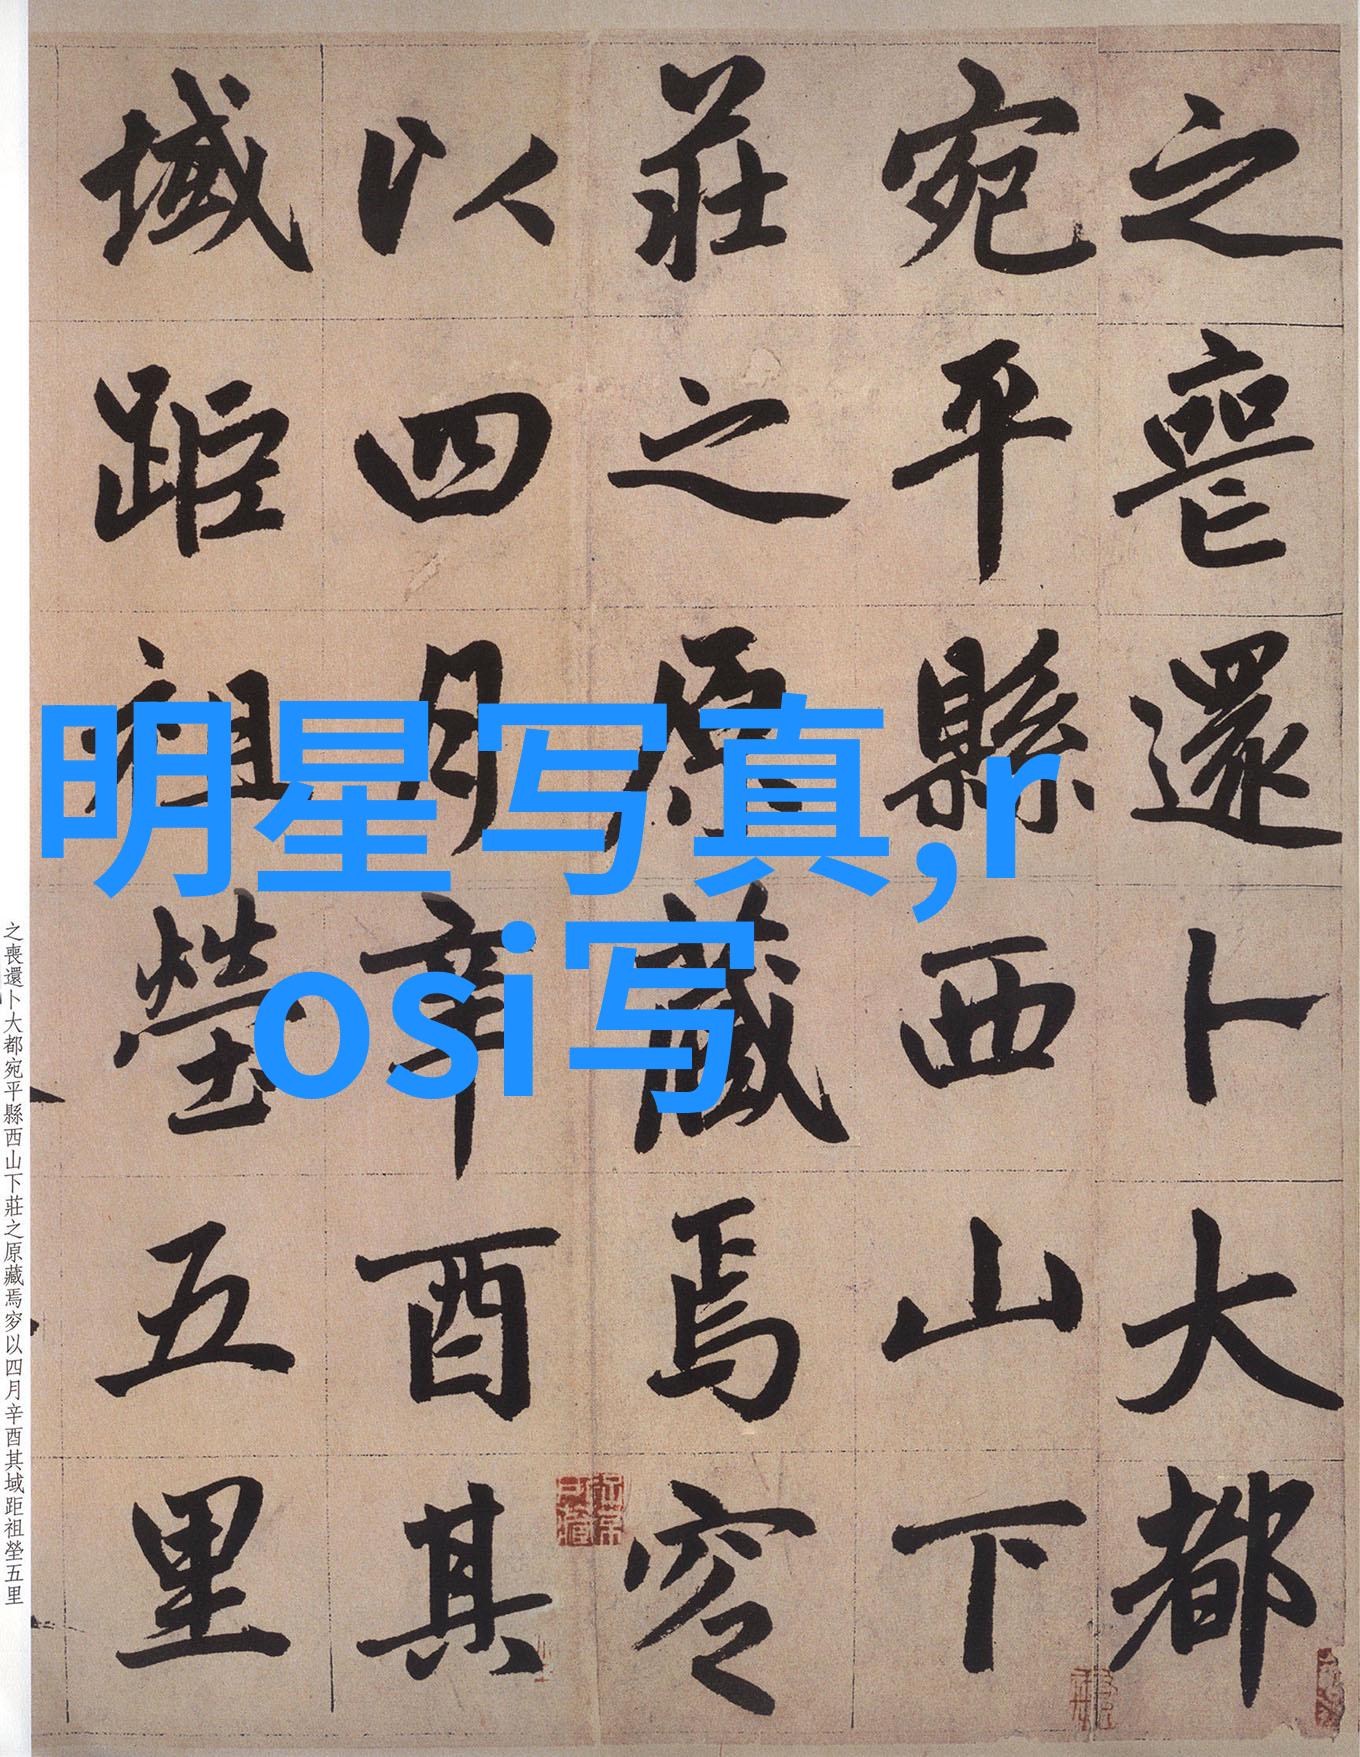 之喪還卜大都
宛平縣西山下
莊之原藏焉穸
以四月辛酉其
域距祖塋五里
明星写真,r
osi写
之喪還卜大都宛平縣西山下莊之原藏焉穸以四月辛酉其域距祖塋五里